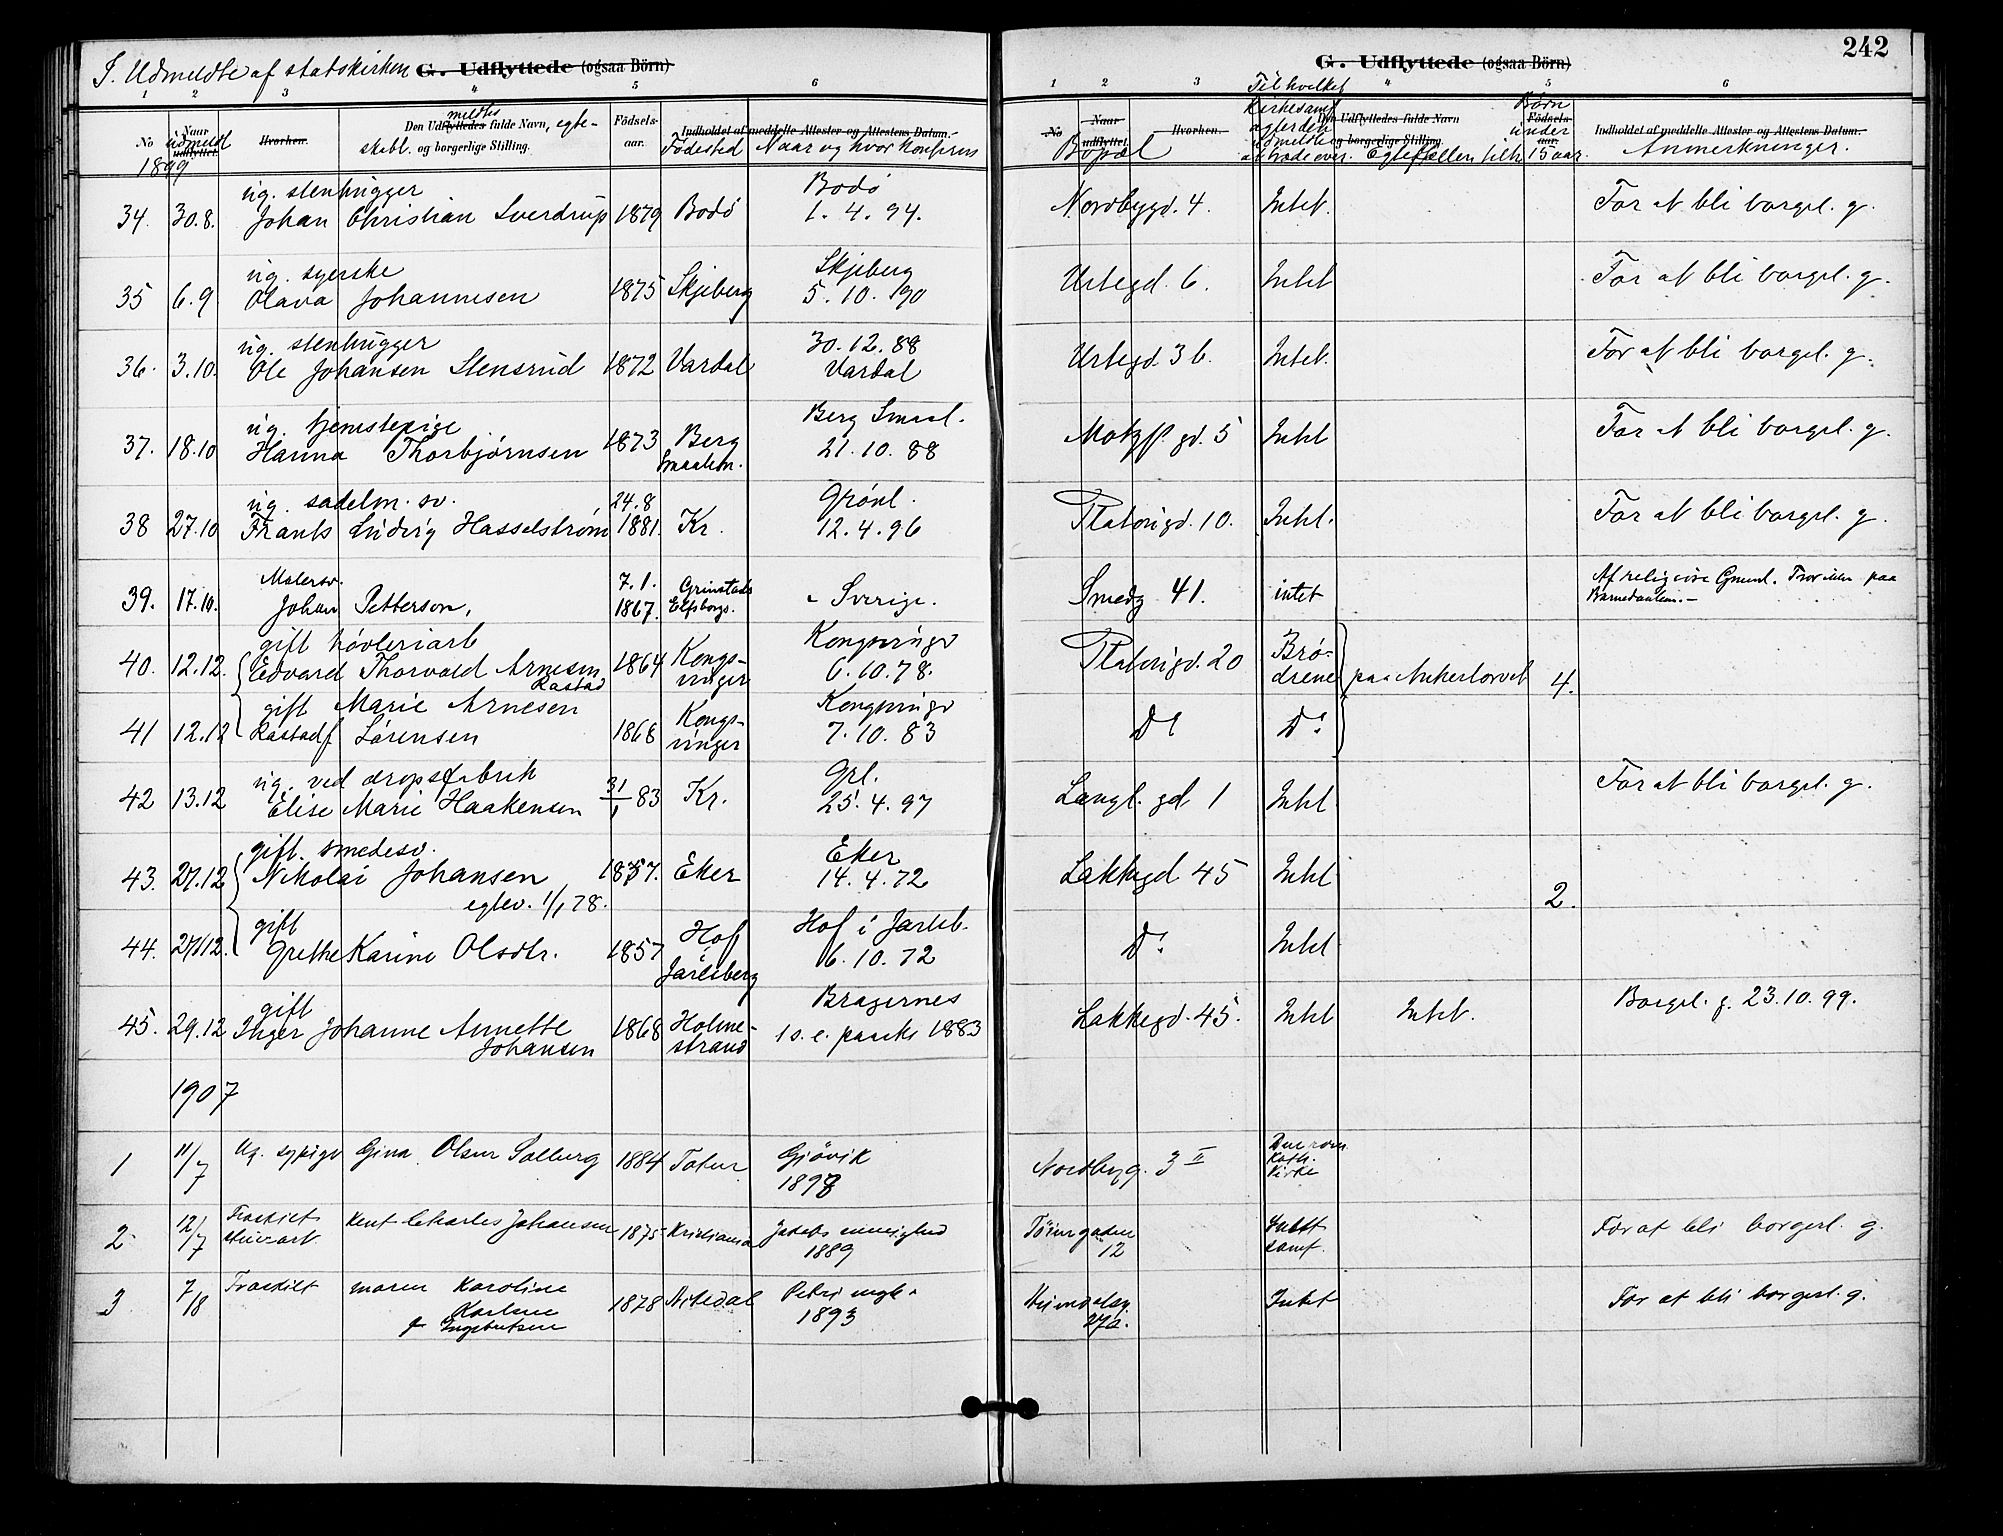 I. Udmeldte af statskirken G. Udflyttede (ogsaa Börn)
1 2 3 4 5 6
No Naar udflyttet. udmeldt Hvorhen. Den Udflyttedes meldtes fulde Navn, egte-
skabl. og borgerlige Stilling. Födsels-aar. Indholdet af meddelte Attester og Attestens Datum.
Födested Naar og hvor konfirm
1899
ug. stenhugger Bodö
34. 30.8. Johan Christian Sverdrup 1879 Bodö 1. 4. 94.
ug. syerske Skjeberg
35 6.9 Olava Johannesen 1875 Skjeberg 5. 10. 90
ug. stenhugger 30.12.88
36. 3.10. Ole Johansen Stensrud 1872 Vardal Vardal
ug. tjenestepige Berg Smaal.
37. 18.10 Hanna Thorbjørnsen 1873 Berg Smaalen. 21.10.88
ug. sadelm. sv. 24.8 Grönl.
38 27.10 Frants Ludvig Hasselstrøm 1881. Kr. 12.4.96
Malersv. 7.1. Grinstads
39. 17.10. Johan Petterson, 1867. Elfsborgs. - Sverige.
gift høvleriarb Kongsvinger
40. 12.12. Edvard Thorvald Arnesen Rastad 1864 Kongs-vinger 6.10.78.
gift Marie Arnesen Kongsvinger
41 12.12 Rastad f Sörensen 1868 Kongs-vinger 7.10.83
ug. ved dropsfabrik 31 Grl.
42 13.12 Elise Marie Haakensen 1 83 Kr. 25.4.97
gift. smedesv. Eker
43. 27.12 Nikolai Johansen 1857. Eker 14.4.72
egtev. 1/1 78.
gift Hof i Jarlsb.
44. 27/12. Grethe Karine Olsdtr. 1857 Hof Jarlsberg 6.10.72
gift Bragernes
45. 29.12 Inger Johanne Annette Johansen 1868 Holme-strand 1 s. e. paaske 1883
1907
1 11/7 Ug. sypige Gina Olsen Solberg 1884 Toten Gjövik 1898
2. 12/7 Fraskilt Kent Charles Johansen 1875 Kristiania Jakobs menighed 1889
3 7/18 Fraskilt Maren Karoline Karlsen f Ingebretsen 1878 Nitedal Petri mgh. 1893
242
G. Udflyttede (ogsaa Börn)
1 2 3 4 5 6
No Naar udflyttet. Hvorhen. Den Udflyttedes fulde Navn og borgerlige Stilling. Födsels-aar. Indholdet af meddelte Attester og Attestens Datum.
Bopæl Til hvilket kirkesamf agter den udmeldte at træde over. Egtefællen tilh. Børn under 15 aar. Anmerkninger.
Nordbygd. 4. Intet. For at bli borgel. g.
Urtegd. 6. Intet For at bli borgel. g.
Urtegd. 36. Intet. For at bli borgel. g.
gd. 5 Intet For at bli borgel. g.
Platousgd. 10. Intet. For at bli borgel. g.
Smedg 41. intet Af religiøse Grund. Tror ikke paa
Barnedaaben.-
Platousgd. 20 Brö-drene paa Ankertorvet 4.
Do Do
Langl. gd 1 Intet For at bli borgel. g.
Lakkegd 45 Intet 2.
Do Intet
Lakkegd. 45. Intet Intet. Borgel. g. 23.10.99.
Nordbyg. 3 II Den rom. Kath. Kirke
Töiengaden 12 Intet samf. For at bli borgerl. g.
Heimdalsg. 27a. Intet For at bli borgerl. g.